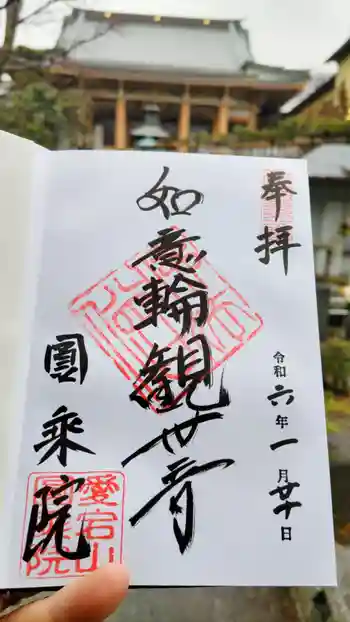 奉拝
令和六年一月廿日
如意輪観世音
圓乗院
愛宕山